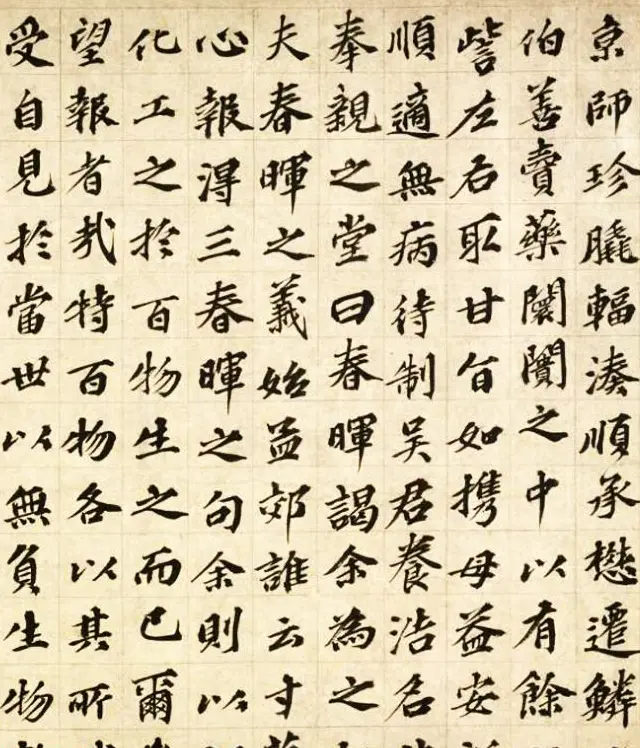 京師珍膬輻湊順承懋遷鱗
伯善賣藥闤闠之中以有餘
訾左右取甘旨如攜母益安
順適無病待制吳君養浩名
奉親之堂曰春暉謁余為之
夫春暉之義始益郊誰云寸
心報得三春暉之句余則以
化工之於百物生之而已爾
望報者哉特百物各以其所
受自見於當世以無負生物